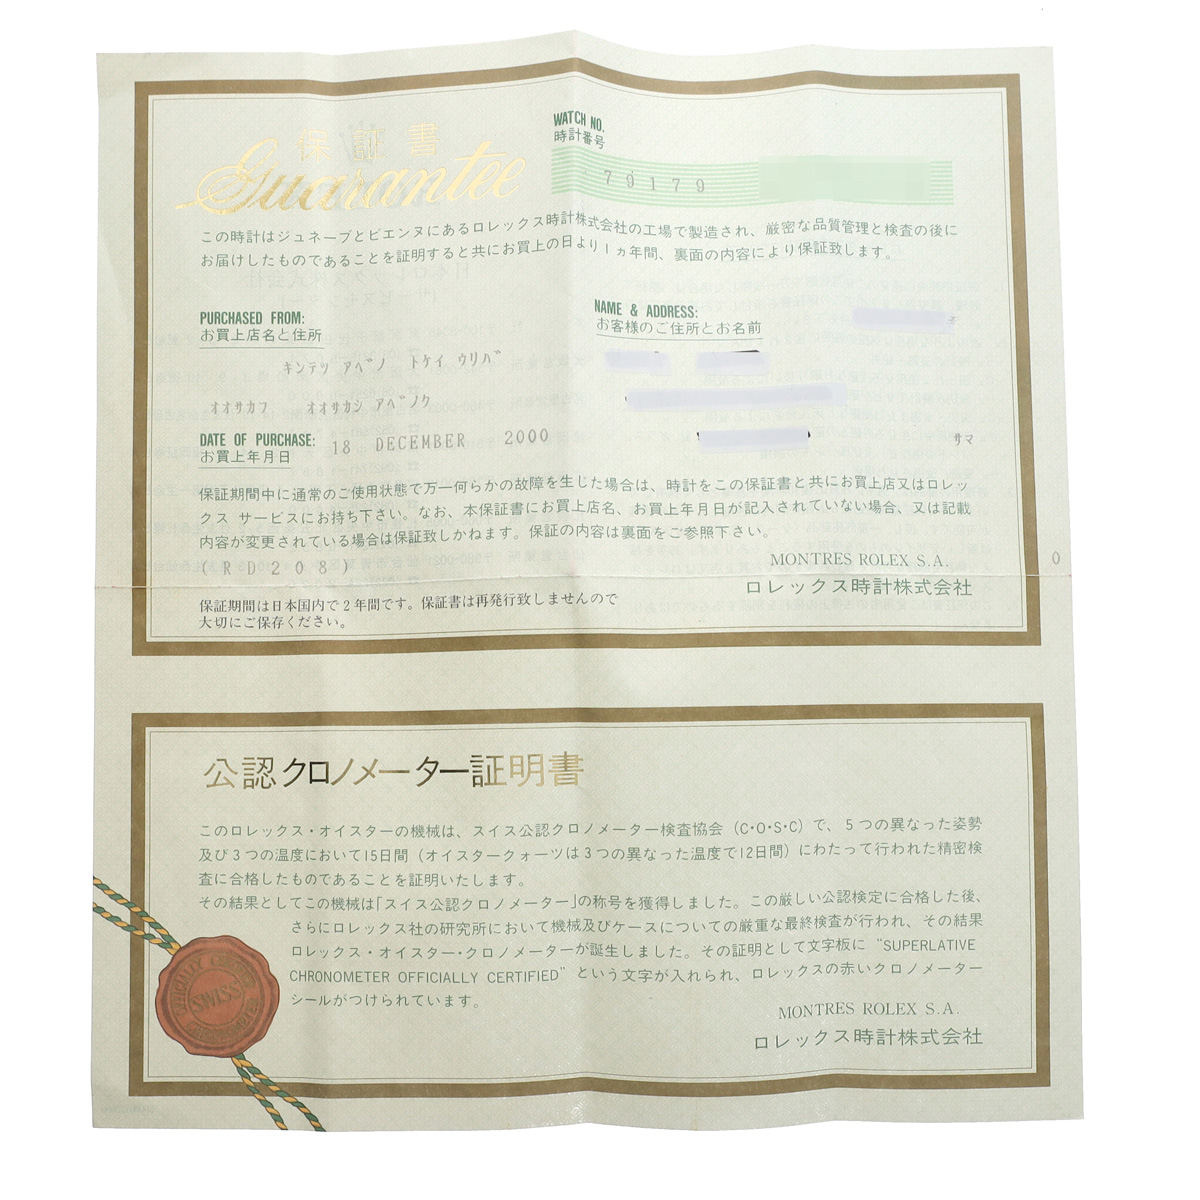 保証書
Guarantee
WATCH NO.
時計番号
79179
この時計はジュネーブとビエンヌにあるロレックス時計株式会社の工場で製造され、厳密な品質管理と検査の後に
お届けしたものであることを証明すると共にお買上の日より1ヵ年間、裏面の内容により保証致します。
PURCHASED FROM:
お買上店名と住所
キンテツ アベノ トケイ ウリバ
オオサカフ オオサカシ アベノク
NAME & ADDRESS:
お客様のご住所とお名前
サマ
DATE OF PURCHASE: 18 DECEMBER 2000
お買上年月日
保証期間中に通常のご使用状態で万一何らかの故障を生じた場合は、時計をこの保証書と共にお買上店又はロレッ
クス サービスにお持ち下さい。なお、本保証書にお買上店名、お買上年月日が記入されていない場合、又は記載
内容が変更されている場合は保証致しかねます。保証の内容は裏面をご参照下さい。
(RD208)
MONTRES ROLEX S.A.
ロレックス時計株式会社
0
保証期間は日本国内で2年間です。保証書は再発行致しませんので
大切にご保存ください。
公認クロノメーター証明書
このロレックス・オイスターの機械は、スイス公認クロノメーター検査協会(C・O・S・C)で、5つの異なった姿勢
及び3つの温度において15日間(オイスタークォーツは3つの異なった温度で12日間)にわたって行われた精密検
査に合格したものであることを証明いたします。
その結果としてこの機械は「スイス公認クロノメーター」の称号を獲得しました。この厳しい公認検定に合格した後、
さらにロレックス社の研究所において機械及びケースについての厳重な最終検査が行われ、その結果
ロレックス・オイスター・クロノメーターが誕生しました。その証明として文字板に “SUPERLATIVE
CHRONOMETER OFFICIALLY CERTIFIED” という文字が入れられ、ロレックスの赤いクロノメーター
シールがつけられています。
OFFICIALLY CERTIFIED
SWISS
CHRONOMETER
MONTRES ROLEX S.A.
ロレックス時計株式会社